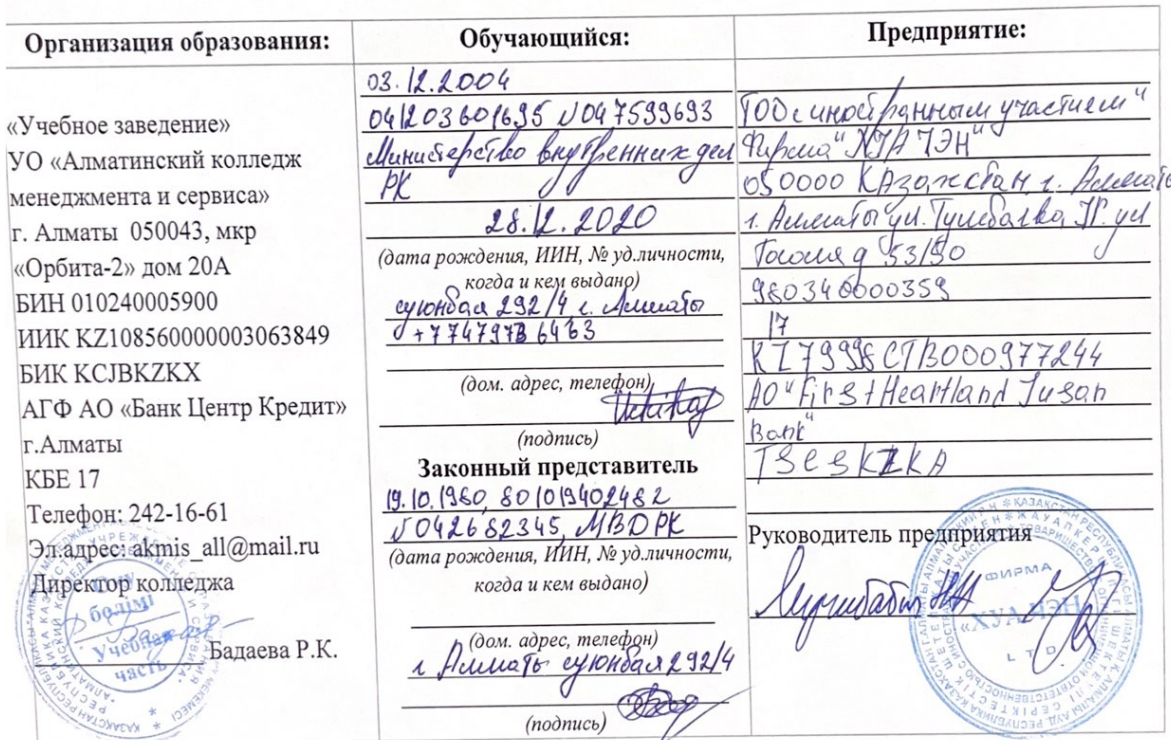 Организация образования:
«Учебное заведение»
УО «Алматинский колледж
менеджмента и сервиса»
г. Алматы 050043, мкр
«Орбита-2» дом 20А
БИН 010240005900
ИИК KZ108560000003063849
БИК KCJBKZKX
АГФ АО «Банк Центр Кредит»
г.Алматы
КБЕ 17
Телефон: 242-16-61
Эл.адрес: akmis_all@mail.ru
Директор колледжа
Бадаева Р.К.
Оқу
бөлімі
Учебная
часть
Обучающийся:
03.12.2004
041203601695 №047599693
Министерство внутренних дел
РК
28.12.2020
(дата рождения, ИИН, № уд.личности,
когда и кем выдано)
суюнбая 292/4 г. Алматы
(дом. адрес, телефон)
(подпись)
Законный представитель
19.10.1980, 801019402482
№042682345, МВД РК
(дата рождения, ИИН, № уд.личности,
когда и кем выдано)
(дом. адрес, телефон)
г Алматы суюнбая 292/4
(подпись)
Предприятие:
ТОО с иностранным участием "
Фирма "ХУА ЧЭН"
050000 Казахстан, г. Алматы
г. Алматы ул. Тулебаева, ул
Гоголя д 53/50
980340000359
17
KZ79998CTB000977244
АО "First Heartland Jusan
Bank"
TSESKZKA
Руководитель предприятия
ФИРМА
«ХУА ЧЭН»
LTD